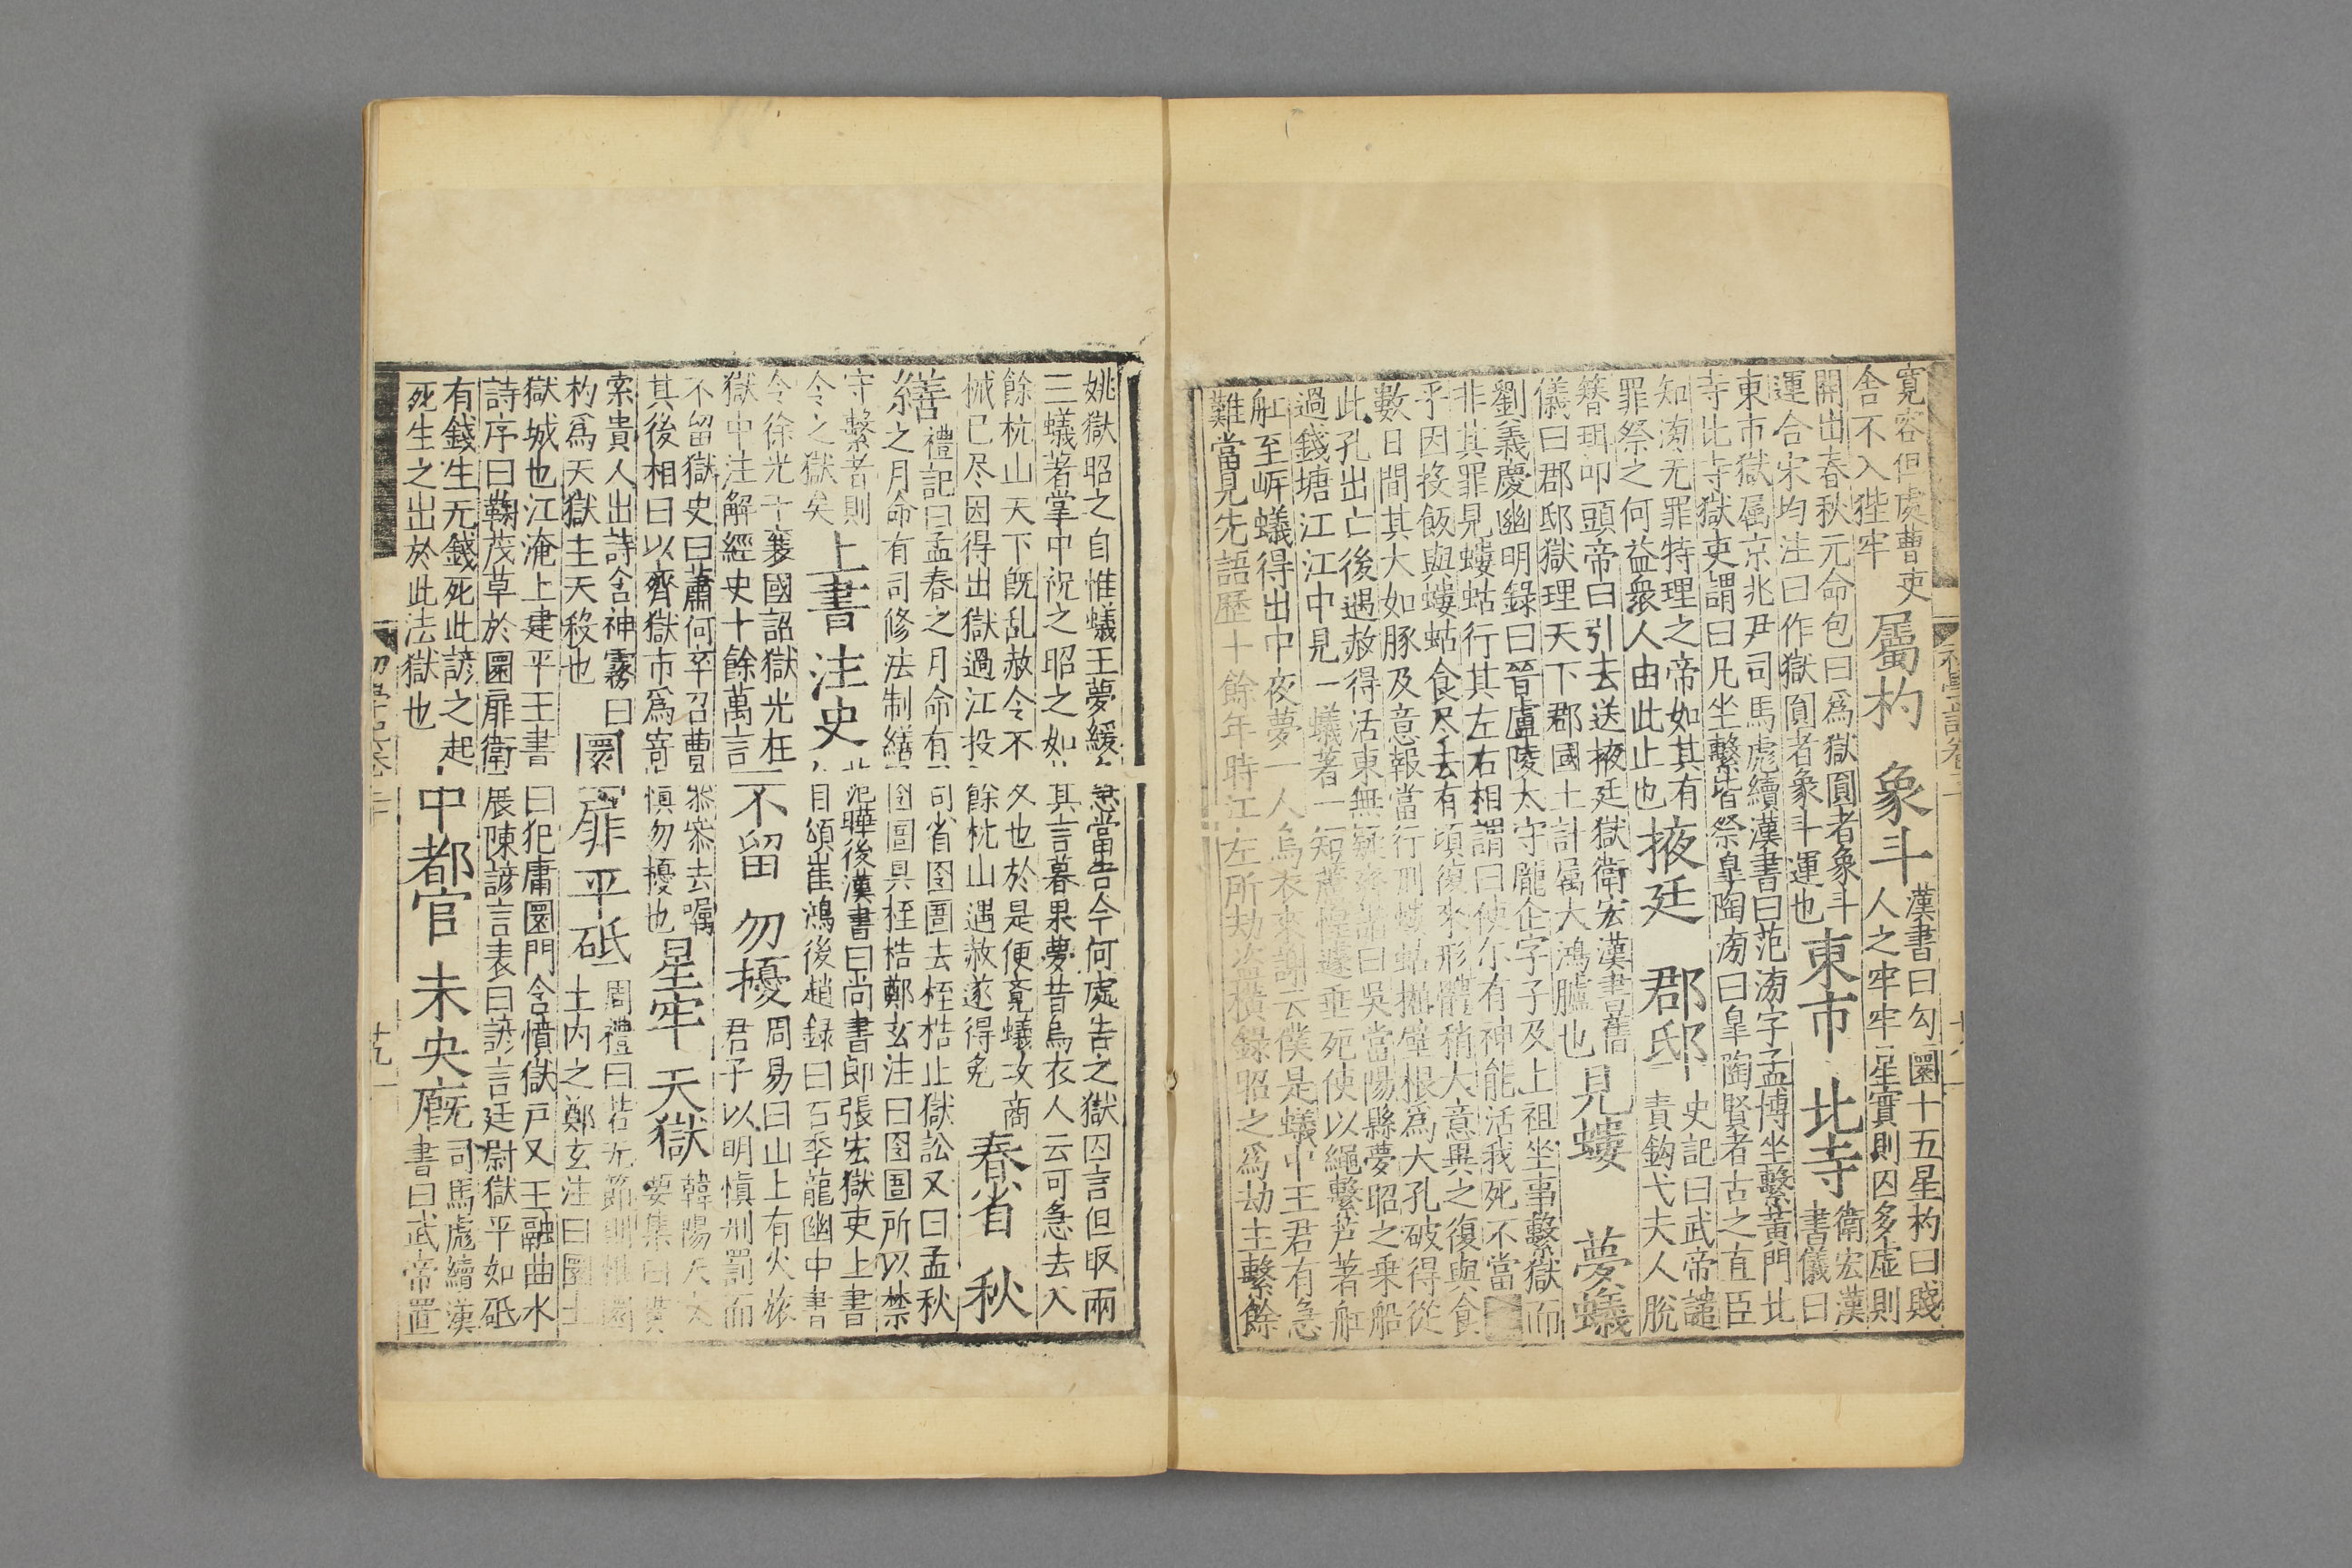 寬容但處曹吏
舍不入狴牢
屬杓 象斗
漢書曰勾圜十五星杓曰賤
人之牢牢星實則囚多虛則
開出春秋元命包曰爲獄圓者象斗
運合宋均注曰作獄圓者象斗運也
東市 北寺
衛宏漢
書儀曰
東市獄属京兆尹司馬彪續漢書曰范滂字孟博坐繫黃門北
寺北寺獄吏謂曰凡坐繫皆祭皐陶滂曰皐陶賢者古之直臣
知滂无罪特理之帝如其有
罪祭之何益衆人由此止也
掖廷 郡邸
史記曰武帝譴
責鈎弋夫人脫
簪珥叩頭帝曰引去送掖廷獄衛宏漢書舊
儀曰郡邸獄理天下郡國上計属大鴻臚也
見螻 夢蟻
劉義慶幽明錄曰晉盧陵太守龎企字子及上祖坐事繫獄而
非其罪見螻蛄行其左右相謂曰使尔有神能活我死不當
乎因投飯與螻蛄食尽去有頃復來形體稍大意異之復與食
數日間其大如豚及意報當行刑螻蛄掘壁根爲大孔破得從
此孔出亡後遇赦得活東無疑齊諧曰吳當陽縣夢昭之乗船
過錢塘江江中見一蟻著一短蘆惶遽垂死使以繩繫芦著舡
舡至岍蟻得出中夜夢一人烏衣來謝云僕是蟻中王君有急
難當見先語歷十餘年時江左所劫盗橫録昭之爲劫主繫餘
姚獄昭之自惟蟻王夢緩急當告今何處告之獄囚言但取兩
三蟻著掌中祝之昭之如其言暮果夢昔烏衣人云可急去入
餘杭山天下旣乱赦令不久也於是便竟蟻攻商
械已尽因得出獄過江投餘杭山遇赦遂得免
春省 秋
繕
禮記曰孟春之月命有司省囹圄去桎梏止獄訟又曰孟秋
之月命有司修法制繕囹圄具桎梏鄭玄注曰囹圄所以禁
守繫者則
令之獄矣
上書 注史
范曄後漢書曰尚書郎張宏獄吏上書
自頌崔鴻後趙録曰石季龍幽中書
令徐光于襄國詔獄光在
獄中注解經史十餘萬言
不留 勿擾
周易曰山上有火旅
君子以明慎刑罰而
不留獄史曰蕭何卒召曹參參去嘱
其後相曰以齊獄市爲寄慎勿擾也
星牢 天獄
韓陽天文
要集曰貫
索貴人出詩含神霧曰
杓爲天獄主天殺也
圜扉 平砥
周禮曰若无節則惟圜
土内之鄭玄注曰圜土
獄城也江淹上建平王書曰犯庸圜門含憤獄户又王融曲水
詩序曰鞠茂草於圜扉衛展陳諺言表曰諺言廷尉獄平如砥
有錢生无錢死此諺之起
死生之出於此法獄也
中都官 未央廐
司馬彪續漢
書曰武帝置